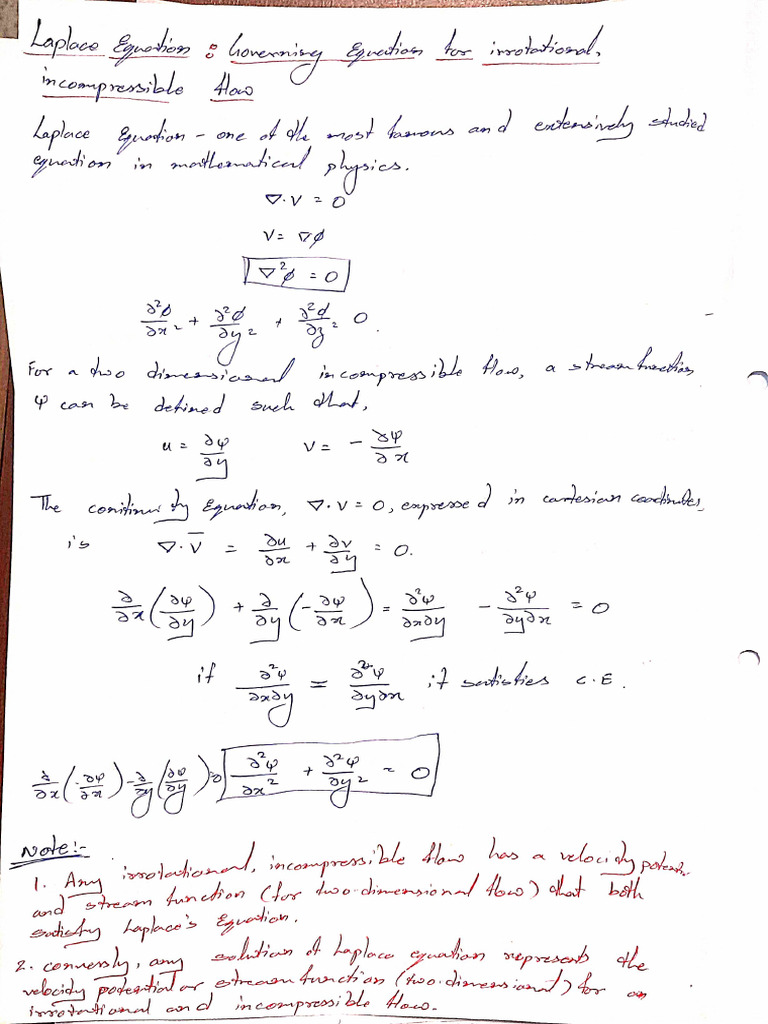 Laplace Equation : Governing Equation for irrotational,
incompressible flow
Laplace Equation - one of the most famous and extensively studied
equation in mathematical physics.
∇·V = 0
V = ∇φ
∇²φ = 0
∂²φ/∂x² + ∂²φ/∂y² + ∂²φ/∂z² 0.
For a two dimensional incompressible flow, a stream function
ψ can be defined such that,
u = ∂ψ/∂y    v = - ∂ψ/∂x
The continuity Equation, ∇·V = 0, expressed in cartesian coordinates,
is ∇·V̅ = ∂u/∂x + ∂v/∂y = 0.
∂/∂x (∂ψ/∂y) + ∂/∂y (-∂ψ/∂x) = ∂²ψ/∂x∂y - ∂²ψ/∂y∂x = 0
if ∂²ψ/∂x∂y = ∂²ψ/∂y∂x it satisfies C.E.
∂/∂x (-∂ψ/∂x) - ∂/∂y (∂ψ/∂y) = 0 ∂²ψ/∂x² + ∂²ψ/∂y² = 0
Note:-
1. Any irrotational, incompressible flow has a velocity potential
and stream function (for two-dimensional flow) that both
satisfy Laplace's Equation.
2. conversly, any solution of Laplace equation represents the
velocity potential or stream function (two-dimensional) for an
irrotational and incompressible flow.